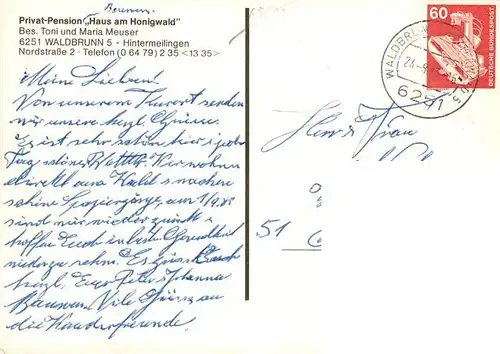 Bauwens
Privat-Pension „Haus am Honigwald"
Bes. Toni und Maria Meuser
6251 WALDBRUNN 5 - Hintermeilingen
Nordstraße 2 · Telefon (0 64 79) 2 35 <13 35>
Meine Lieben!
Von unserem Kurort senden
wir unsere herzl. Grüsse.
Es ist sehr schön hier, jeden
Tag schönes Wetter. Wir wohnen
direkt am Wald u. machen
schöne Spaziergänge, am 1/9.
sind wir wieder zurück u.
hoffen Euch in bester Gesundheit
wiederzusehn. Es grüsst Euch
herzl. Eure Peter u. Johanna
Viele Grüsse an
die Wanderfreunde.
60
DEUTSCHE BUNDESPOST
WALDBRUNN
6251
Herrn u. Frau
51